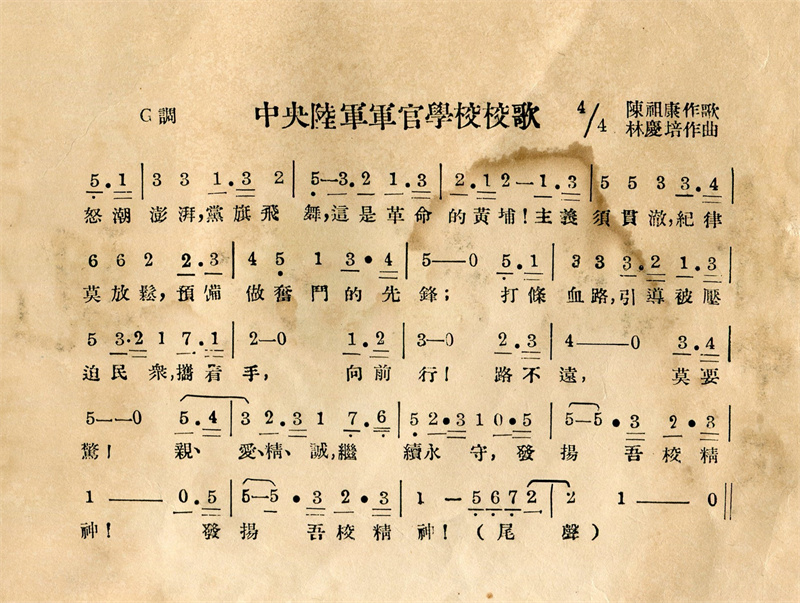 G調 中央陸軍軍官學校校歌 4/4 陳祖康作歌
林慶培作曲
5.1|3 3 1.3 2|5—3.2 1.3|2.1 2—1.3|5 5 3 3.4|
怒潮澎湃,黨旗飛舞,這是革命的黃埔!主義須貫澈,紀律
6 6 2 2.3|4 5 1 3.4|5——0 5.1|3 3 3.2 1.3|
莫放鬆,預備做奮鬥的先鋒;打條血路,引導被壓
5 3.2 1 7.1|2—0 1.2|3—0 2.3|4——0 3.4|
迫民衆,攜着手,向前行!路不遠,莫要
5——0 5.4|3 2.3 1 7.6|5 2.3 1 0.5|5—5.3 2.3|
驚!親、愛、精、誠,繼續永守,發揚吾校精
1——0.5|5—5.3 2.3|1—5 6 7 2|2 1——0||
神!發揚吾校精神!(尾聲)